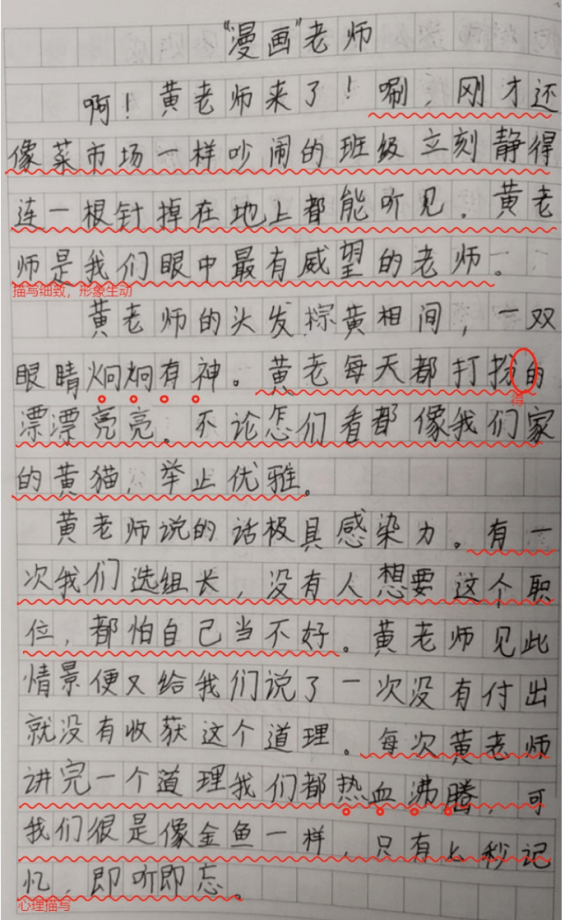 “漫画”老师
啊！黄老师来了！唰，刚才还
像菜市场一样吵闹的班级立刻静得
连一根针掉在地上都能听见。黄老
师是我们眼中最有威望的老师。
描写细致，形象生动
黄老师的头发棕黄相间，一双
眼睛炯炯有神。黄老每天都打扮的
得
漂漂亮亮。不论怎们看都像我们家
的黄猫，举止优雅。
黄老师说的话极具感染力。有一
次我们选组长，没有人想要这个职
位，都怕自己当不好。黄老师见此
情景便又给我们说了一次没有付出
就没有收获这个道理。每次黄老师
讲完一个道理我们都热血沸腾，可
我们很是像金鱼一样，只有七秒记
忆，即听即忘。
心理描写